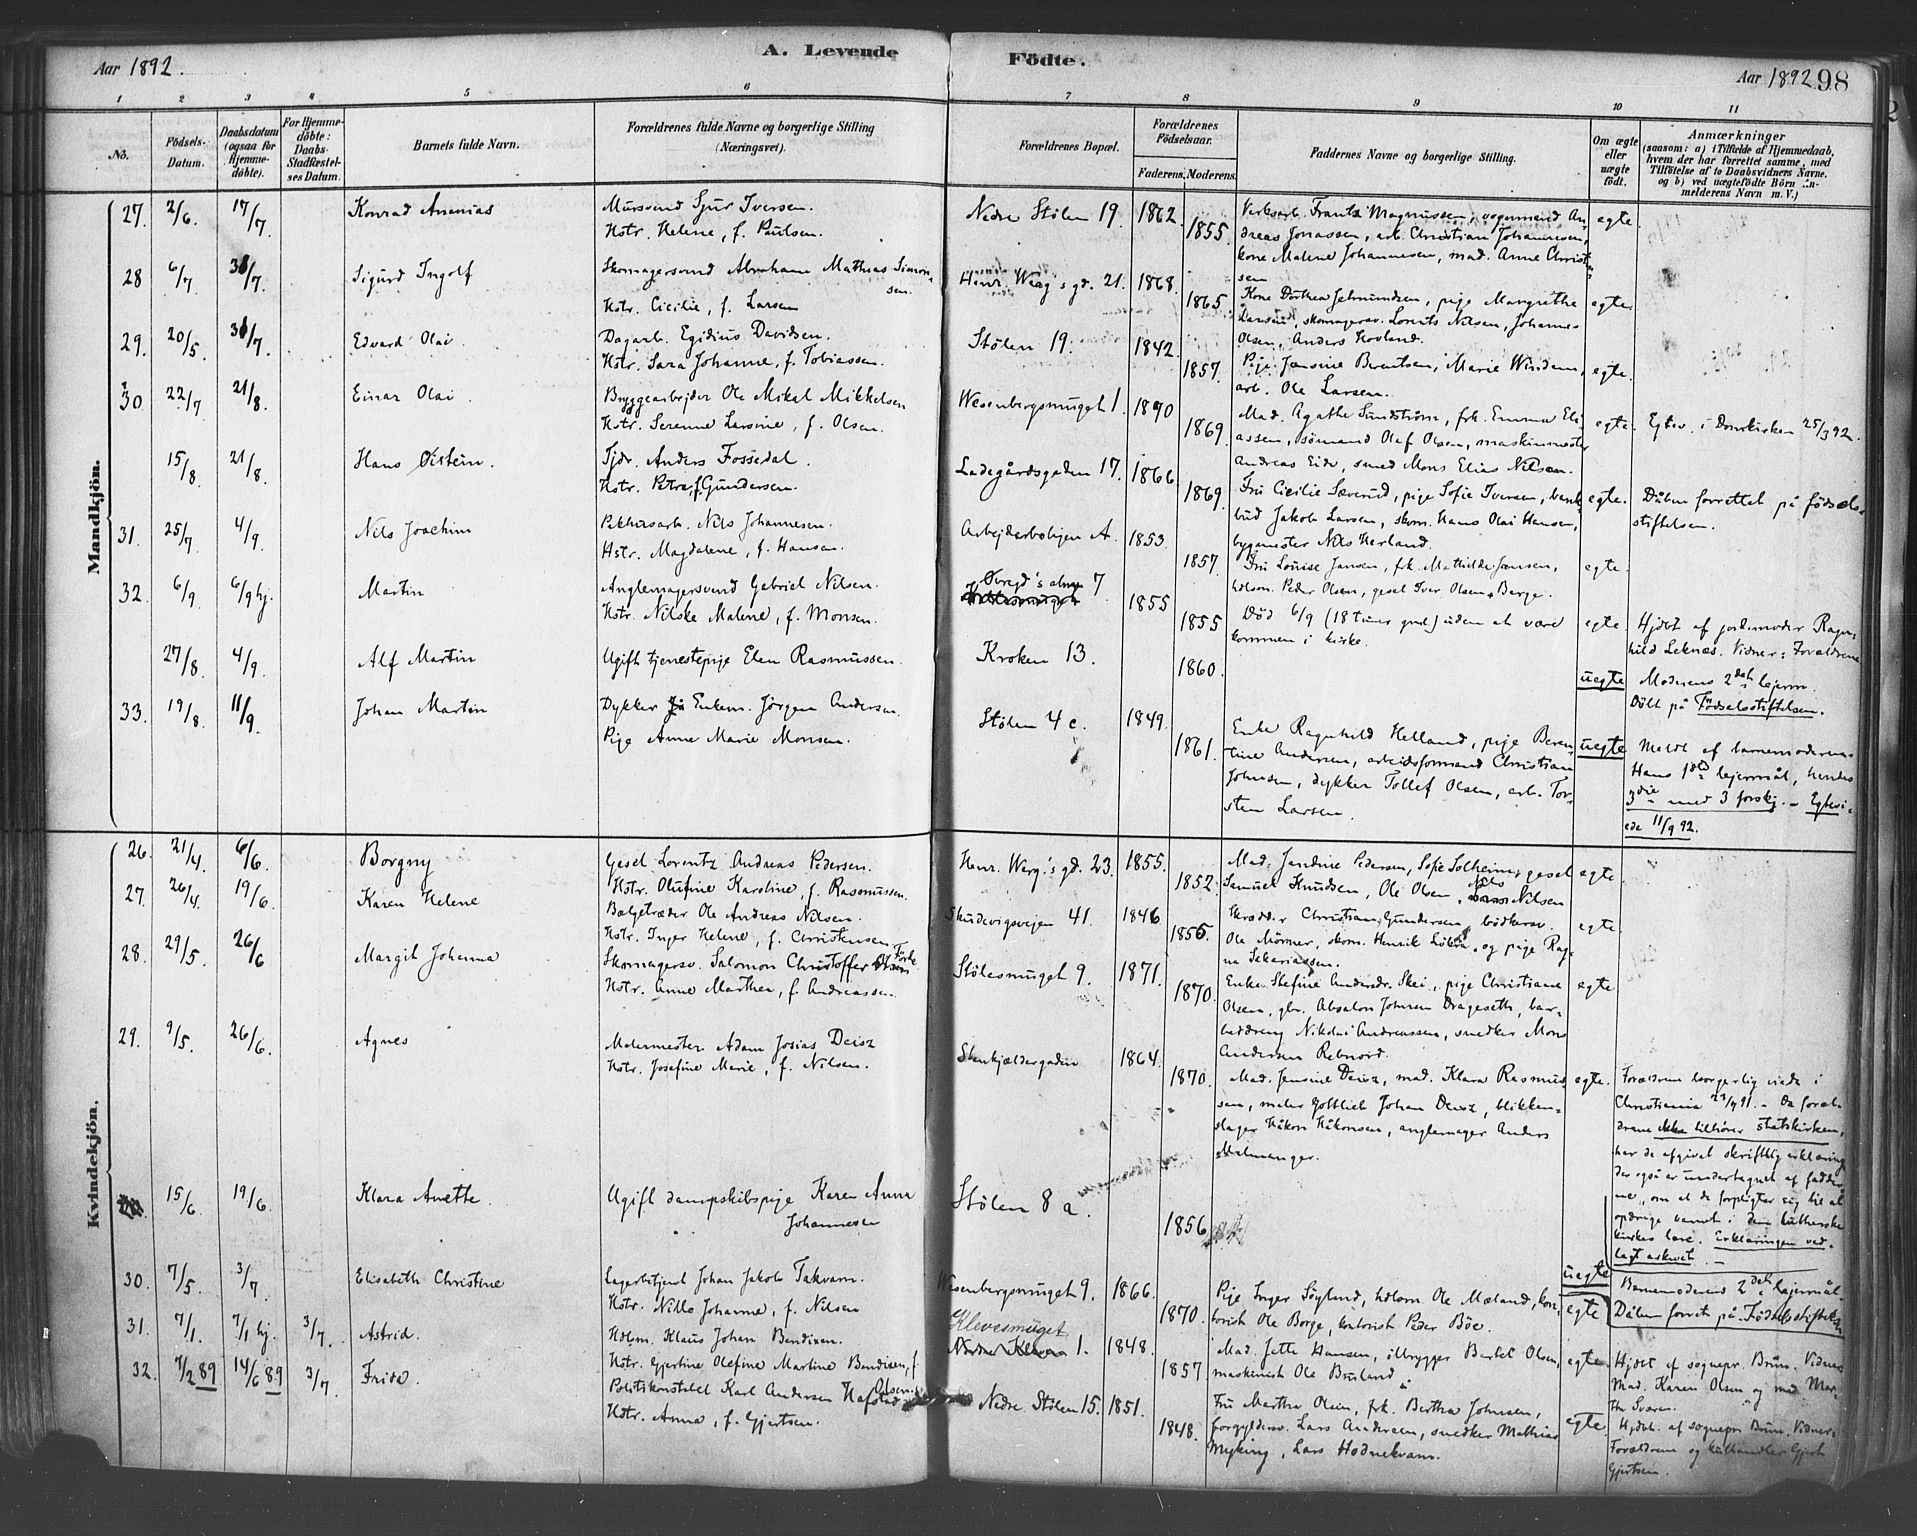 Aar 1892.
A. Levende
Födte.
Aar 1892
98
1 2 3 4 5 6 7 8 9 10 11
No.
Födsels-
Datum.
Daabsdatum
(ogsaa for
Hjemme-
døbte).
For Hjemme-
döbte:
Daabs-
Stadfæstel-
ses Datum.
Barnets fulde Navn.
Forældrenes fulde Navne og borgerlige Stilling
(Næringsvei).
Forældrenes Bopæl.
Forældrenes
Fødselsaar.
Faderens.
Moderens.
Faddernes Navne og borgerlige Stilling.
Om ægte
eller
uægte
født.
Anmærkninger
(saasom: a) i Tilfælde af Hjemmedaab,
hvem der har forrettet samme, med
Tilføielse af to Daabsvidners Navne.
og b) ved uægtefødte Börn An-
melderens Navn m. V.)
Mandkjön.
27. 2/6 17/7 Konrad Ananias
Mursvend Sjur Iversen.
Hstr. Helene, f. Paulsen.
Nedre Stölen 19. 1862 1855.
Verksarb. Frantz Magnussen, vognmand An-
dreas Jonassen, arb. Christian Johannesen,
kone Malene Johannesen, mad. Anne Christen-
sen
egte
28 6/7 /7. Sigurd Ingolf
Skomagersvend Abraham Mathias Simon-
sen.
Hstr. Cicilie, f. Larsen
Henr. Werg's gd. 21. 1868. 1865
Kone Dorthea Jetmundsen, pige Margrethe
Larsen, skomagersv. Lorents Nilsen, Johannes
Olsen, Anders Hovland.
egte.
29. 20/5 /7. Edvard Olai.
Dagarb. Egidius Davidsen.
Hstr. Sara Johanne, f. Tobiassen.
Stölen 19. 1842. 1857.
Pige Jensine Berentsen, Marie Windem,
arb. Ole Larsen.
egte.
30. 22/7 21/8. Einar Olai.
Bryggearbejder Ole Mikal Mikkelsen
Hstr. Serenne Larsine, f. Olsen.
Wesenbergsmuget 1. 1869.
Mad. Agathe Sundström, frk. Emma Eli-
assen, sömand Olaf Olsen, maskinmester
Andreas Eide, smed Mons Elias Nilsen.
egte.
Egtev. i Domkirken 25/3 92.
15/8. 21/8. Hans Öistein.
Tjdr. Anders Fossedal.
Hstr. Petra, f. Gundersen.
Ladegårdsgaden 17. 1866 1869
Fru Cicilie Sæverud, pige Sofie Iversen,
bud Jakob Larsen, skom. Hans Olai Hansen,
bygmester Nils Herland.
egte.
Dåben forrettet på fødsels-
stiftelsen.
31. 25/7 4/9. Nils Joachim
Pakhusarb. Nils Johannesen.
Hstr. Magdalene, f. Hansen.
Arbejderboligen A. 1853. 1857.
Fru Louise Jansen, frk. Mathilde Jansen,
hdlsm. Peder Olsen, gesel Iver Olsen Berge.
egte.
32. 6/9. 6/9 hj. Martin
Anglemagersvend Gebriel Nilsen.
Hstr. Nilske Malene, f. Monsen.
Övregd's alm. 7 1855 1855
Död 6/9 (18 timer gml.) uden at være
kommen i kirke.
egte
Hjdøbt af jordemoder Ragn-
hild Leknæs. Vidner: Forældrene
27/8. 4/9. Alf Martin
Ugift tjenestepige Elen Rasmussen.
Kroken 13. 1860.
uegte
Moderens 2det lejerm.
Döbt på Födselsstiftelsen.
33. 19/8. 11/9. Johan Martin
Dykker Enkem. Jörgen Andersen.
Pige Anne Marie Monsen.
Stölen 4 c. 1849. 1861.
Enke Ragnhild Helland, pige Beren-
tine Andersen, arbeidsformand Christian
Johnsen, dykker Tollef Olsen, arb. Tor-
sten Larsen.
uegte
Meldt af barnemoderen.
Hans 1ste lejermål, hendes
3die med 3 forskj. – Egtevi-
ede 11/9 92.
Kvindekjön.
26. 21/4. 6/6. Borgny
Gesel Lorentz Andreas Pedersen.
Hstr. Olufine Karoline, f. Rasmussen.
Henr. Werg.'s gd. 23. 1855. 1852.
Mad. Jandine Pedersen, Sofie Solheim, gesel
Samuel Knudsen, Ole Olsen, Nils Nilsen
egte.
27. 26/4. 19/6. Karen Helene
Bælgetræder Ole Andreas Nilsen.
Hstr. Inger Helene, f. Christensen.
Skudevigsvejen 41. 1846 1855.
Skrædder Christian Gundersen, bödkersv.
Ole Mörner, skom. Henrik , og pige Rag-
na Sekariassen.
egte.
28. 29/5. 26/6 Margit Johanna
Skomagersv. Salomon Christoffer
Hstr. Anne Marthea, f. Andreassen.
Stölesmuget 9. 1871. 1870.
Enke Stefine Andersdr. Skei, pige Christiane
Olsen, gbr. Absalon Johnsen Drageseth, bar-
beddreng Nikolai Andreassen, snedker Mons
Andersen Rebnord.
egte
29. 9/5. 26/6. Agnes
Malermester Adam Josias Deisz
Hstr. Josefine Marie, f. Nilsen.
Stenkjældergaden 1864. 1870.
Mad. Jensine Deisz, mad. Klara Rasmus-
sen, maler Gottlieb Johan Deisz, blikken-
slager Håkon Håkonsen, anglemager Anders
Malmanger.
egte.
Forældrene borgerlig viede i
Christiania 91. – Da foræl-
drene ikke tilhører statskirken,
har de afgivet skriftlig erklæring
der også er undertegnet af fadder-
ne, om at de forpligter sig til at
opdrage barnet i den lutherske
kirkes lære. Erklæringen ved-
lagt arkivet. –
15/6. 19/6. Klara Anette.
Ugift dampskibspige Karen Anna
Johannesen
Stölen 8 a. 1856
uegte
Barnemoderens 2det lejermål.
Dåben forret. på Födselsstiftelsen
30. 7/5. 3/7. Elisabeth Christine
Lagerbetjent Johan Jakob Takvam.
Hstr. Nille Johanne, f. Nilsen
Wesenbergsmuget 9. 1866. 1870.
Pige Inger Söylend, hdlsm. Ole Mæland, kon-
torist Ole Borge, kontorist Peder Böe.
egte
31. 7/1. 7/1 hj. 3/7. Astrid.
Hdlsm. Klaus Johan Bendixen.
Hstr. Gjertine Olefine Martine Bendixen, f.
Olsen.
Klevesmuget
1. 1848. 1857
Mad. Jette Hansen, ilbrygger Bertel Olsen,
maskinist Ole Bruland
egte.
Hjdøbt af sognepr. Brun. Vidner
Mad. Karen Olsen og mad. Mar-
the Sværen.
32. 7/2 89 14/6 89 3/7. Frida.
Politikonstabel Karl Andersen Hafstad
Hstr. Anna, f. Gjertsen.
Nedre Stölen 15. 1851. 1848.
Fru Martha Olsen, frk. Bertha Johnsen,
forgyldersv. Lars Andersen, snedker Mathias
Myking, Lars Hodnekvam.
egte.
Hjdøbt. af sognepr Brun. Vidner:
Forældrene og kulhandler Gjert
Gjertsen.